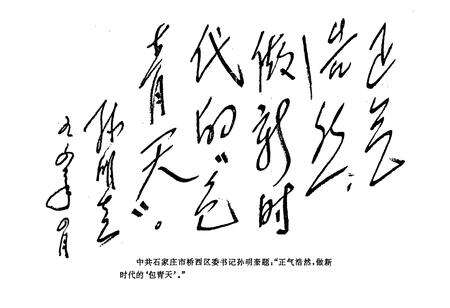 正气
浩然，
做新时
代的“包
青天”。
孙明奎
中共石家庄市桥西区委书记孙明奎题：“正气浩然，做新
时代的‘包青天’。”